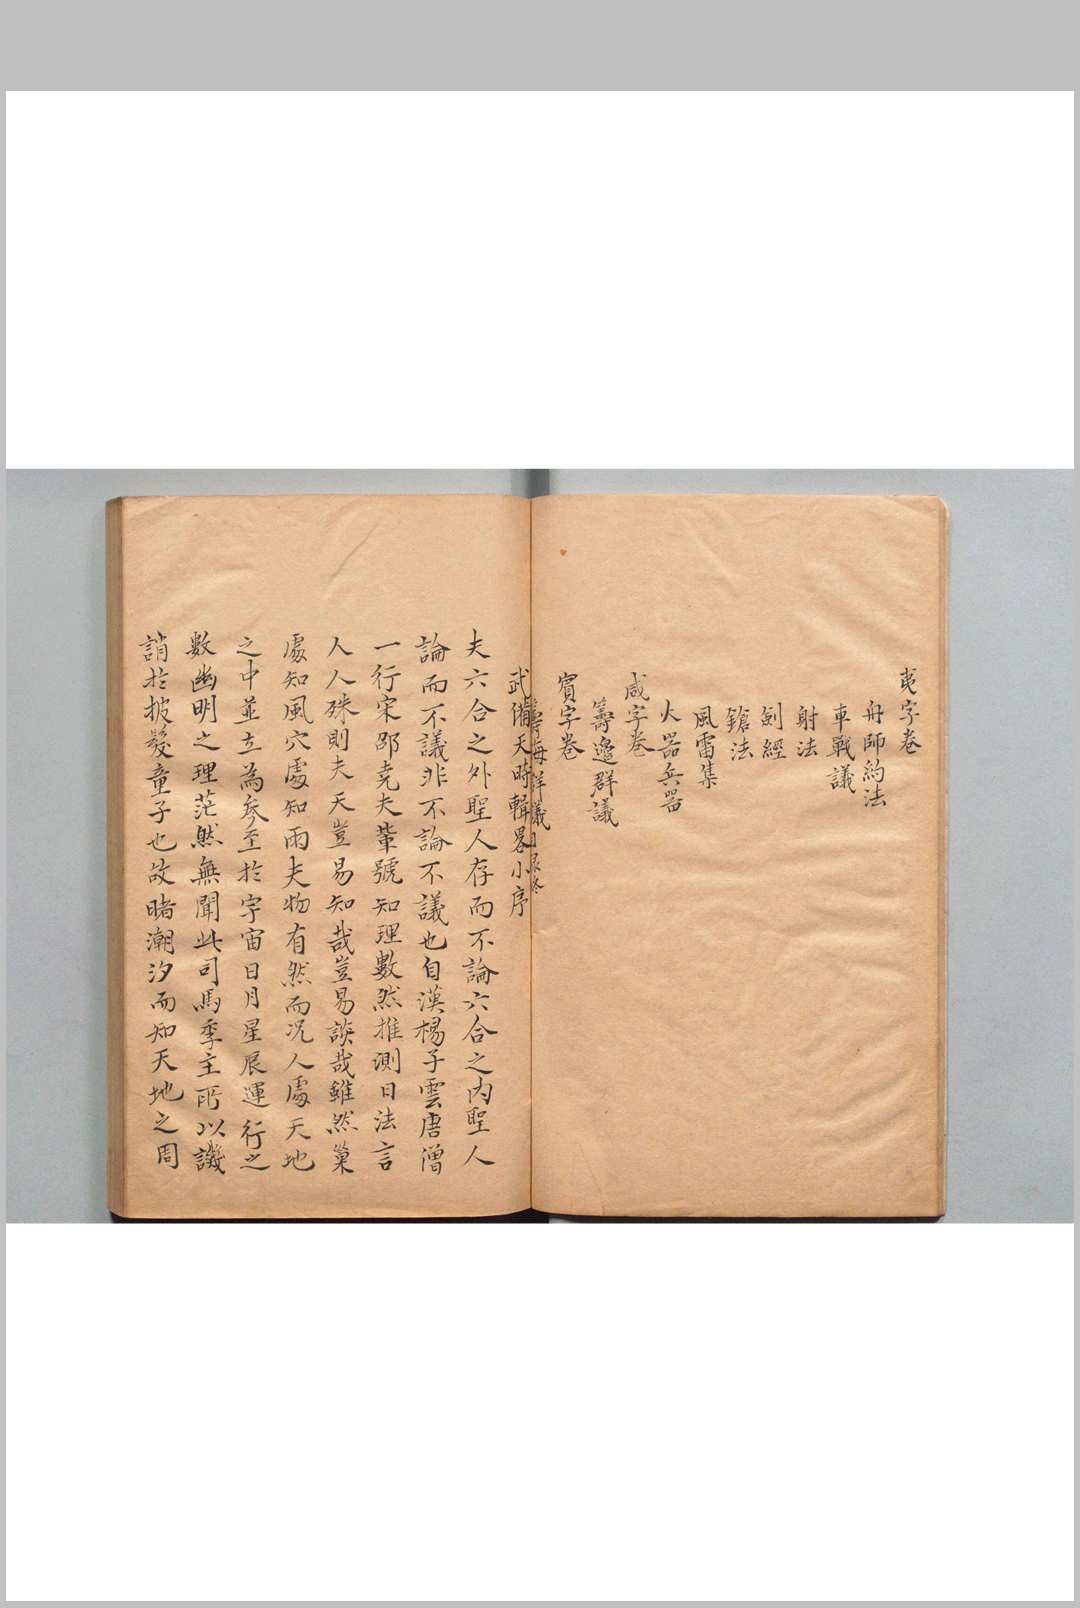 夷字卷
舟師約法
車戰議
射法
劍經
鎗法
風雷集
火器兵器
咸字卷
籌邊群議
賓字卷
籌海群議目录終
武備天時輯畧小序
夫六合之外聖人存而不論六合之內聖人
論而不議非不論不議也自漢楊子雲唐僧
一行宋邵堯夫輩號知理數然推測日法言
人人殊則夫天豈易知哉豈易談哉雖然巢
處知風穴處知雨夫物有然而况人處天地
之中並立為參至於宇宙日月星辰運行之
數幽明之理茫然無聞此司馬季主所以譏
誚於披髮童子也故睹潮汐而知天地之周